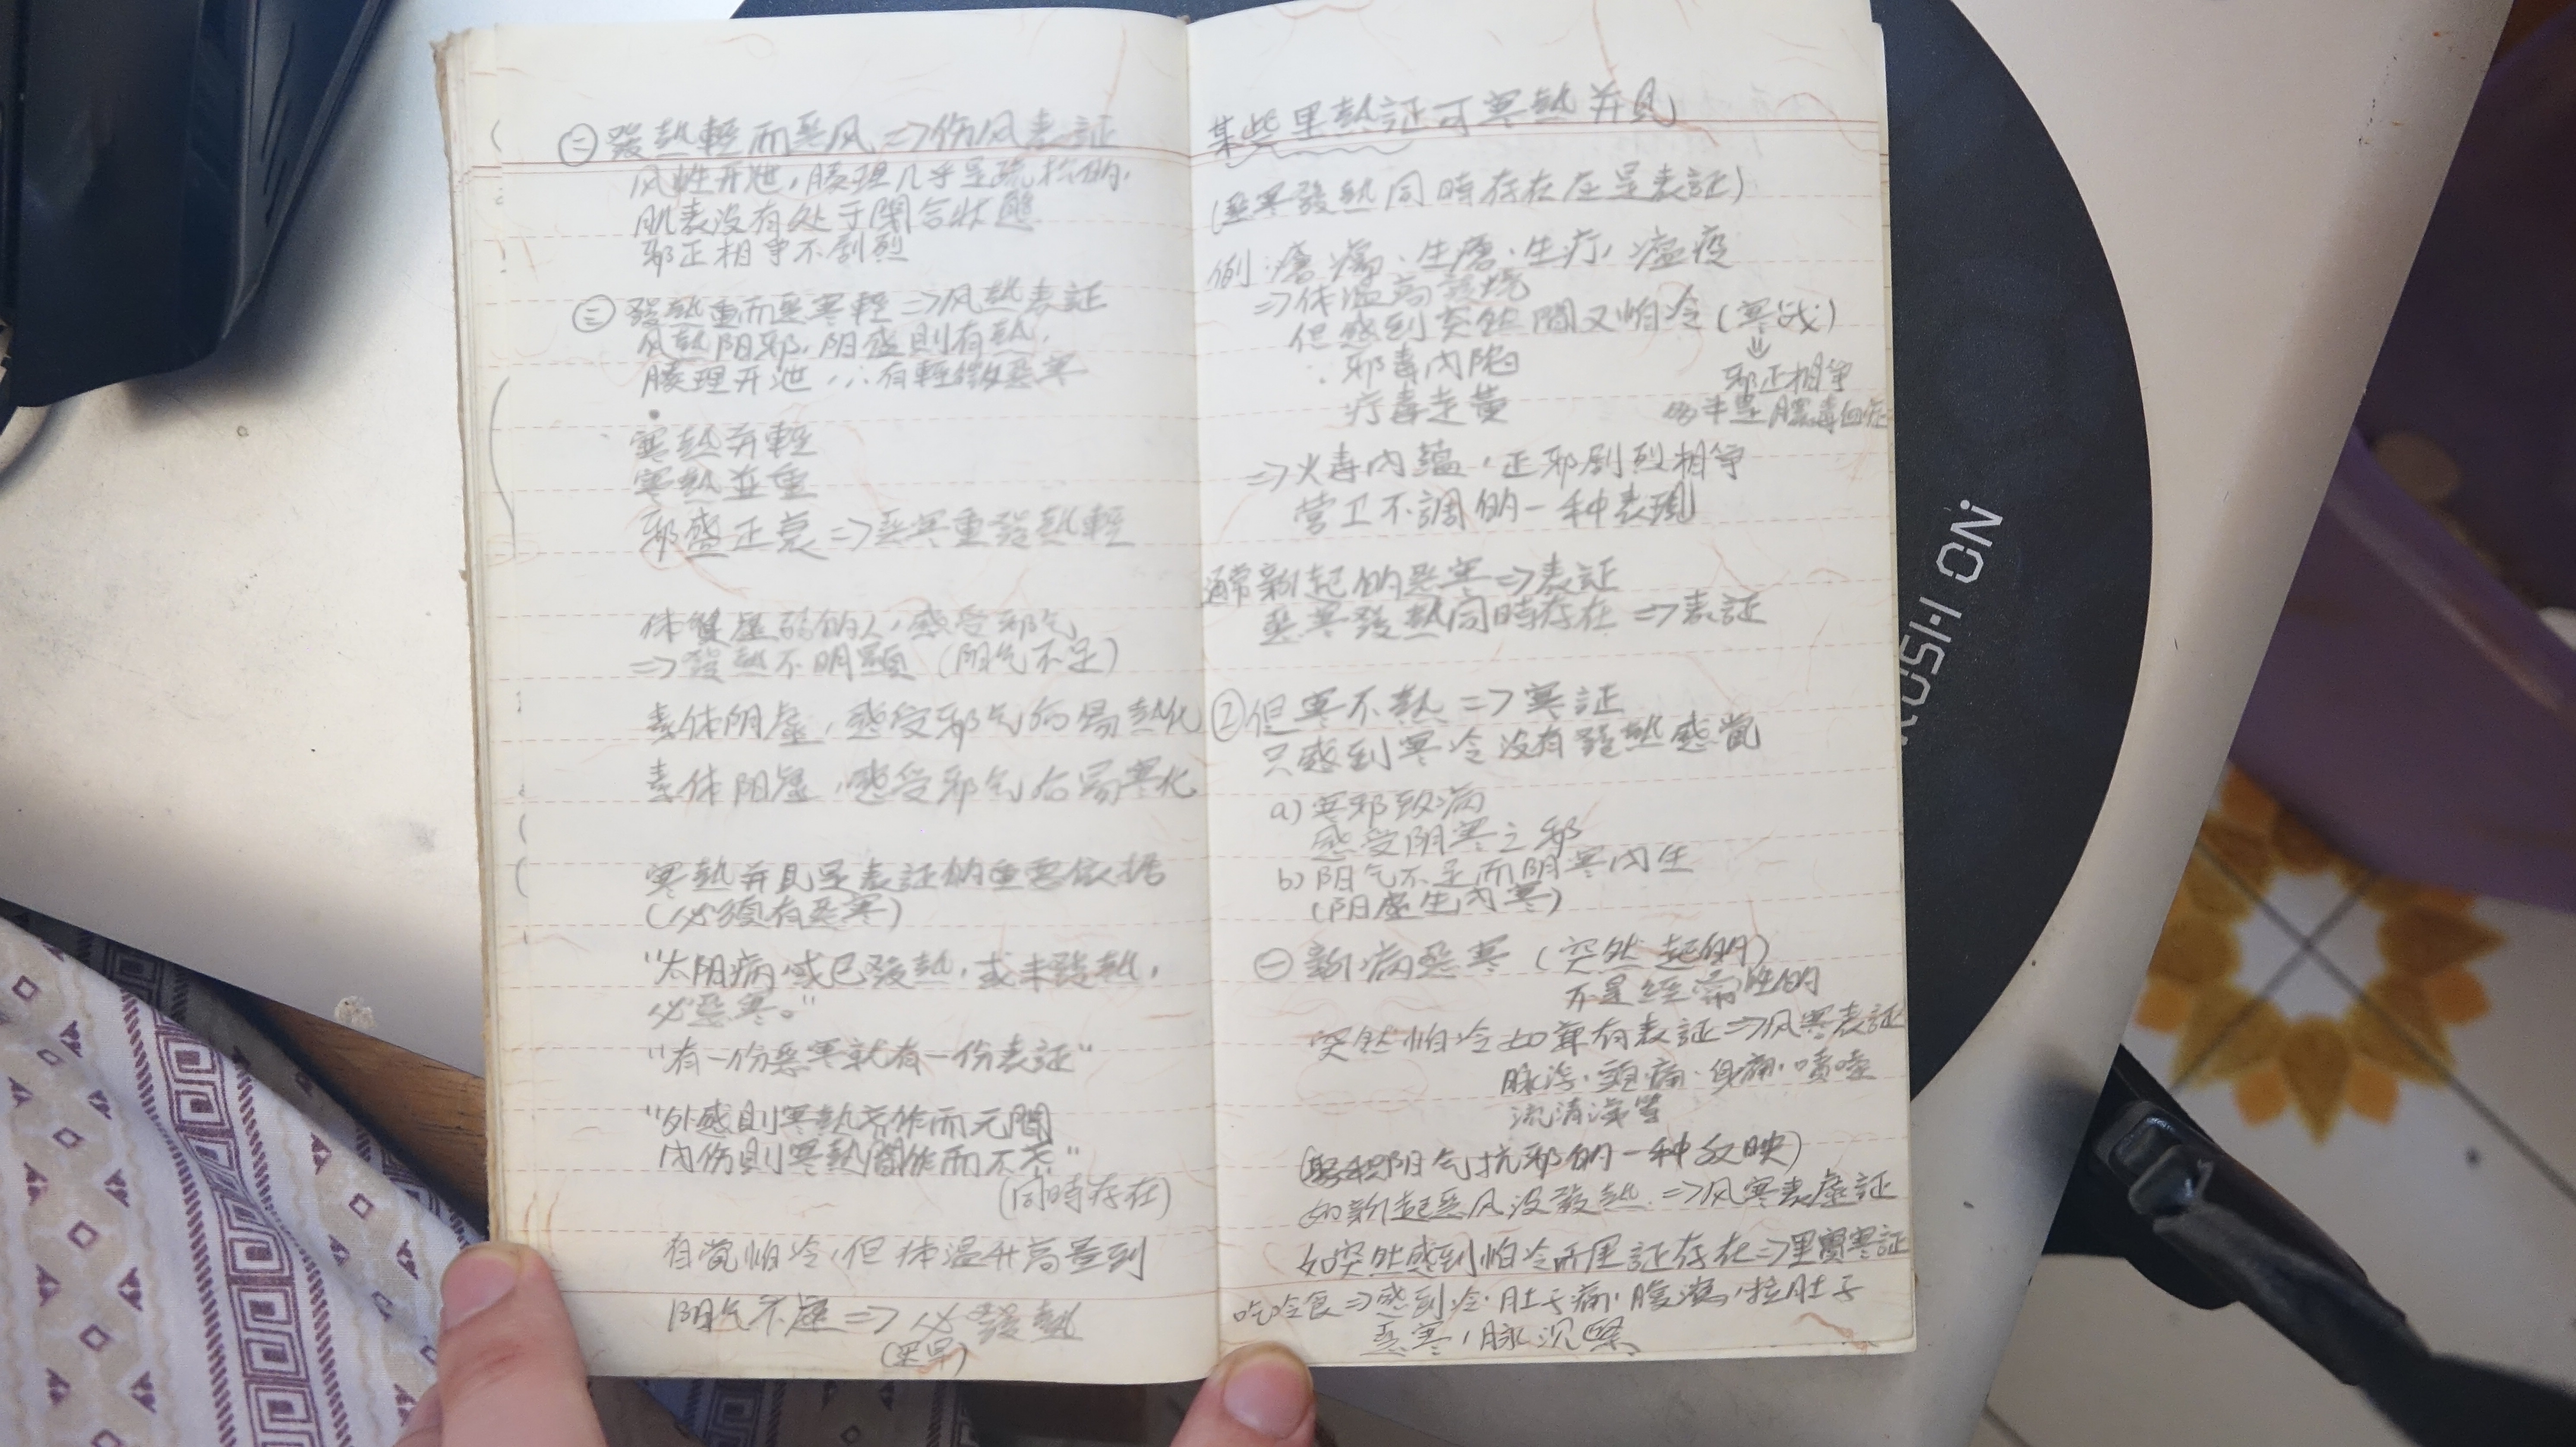 ㊁ 發熱輕而惡风 => 伤风表証
风性开泄，腠理几乎是疏松的，
肌表没有处于閉合状態
邪正相争不剧烈
㊂ 發熱重而惡寒輕 => 风熱表証
风熱阳邪，阳盛則有熱，
腠理开泄，∴有輕微惡寒
寒熱并輕
寒熱並重
邪盛正衰 => 惡寒重發熱輕
体質虛弱的人，感受邪气
=> 發熱不明顯 (阳气不足)
素体阴虛，感受邪气后易熱化
素体阳虛，感受邪气后易寒化
寒熱并見是表証的重要依据
(必須有惡寒)
"太阳病，或已發熱，或未發熱，
必惡寒。"
"有一份惡寒就有一份表証"
"外感則寒熱齐作而无間
内伤則寒熱間作而不齐"
(同時存在)
自觉怕冷，但体温升高量到
阳气不虛 => 必發熱
(迟早)
某些里熱証可寒熱并見
(惡寒發熱同時存在应是表証)
例：瘡瘍、生瘡、生疔、瘟疫
=> 体温高發燒
但感到突然間又怕冷 (寒战)
邪正相争
∵邪毒内陷
疔毒走黃
膿毒血症
=> 火毒内蘊，正邪剧烈相争
营卫不調的一种表現
通常新起的惡寒 => 表証
惡寒發熱同時存在 => 表証
② 但寒不熱 => 寒証
只感到寒冷没有發熱感觉
a) 寒邪致病
感受阴寒之邪
b) 阳气不足而阴寒内生
(阳虛生内寒)
㊀ 新病惡寒 (突然起的)
不是經常性的
突然怕冷如兼有表証 => 风寒表証
脉浮、頭痛、身痛、噴嚏
流清涕等
阳气抗邪的一种反映)
如新起惡风没發熱 => 风寒表虛証
如突然感到怕冷而里証存在 => 里實寒証
吃冷食 => 感到冷、肚子痛、腹瀉，拉肚子
惡寒，脉沉緊
KOSHI ON